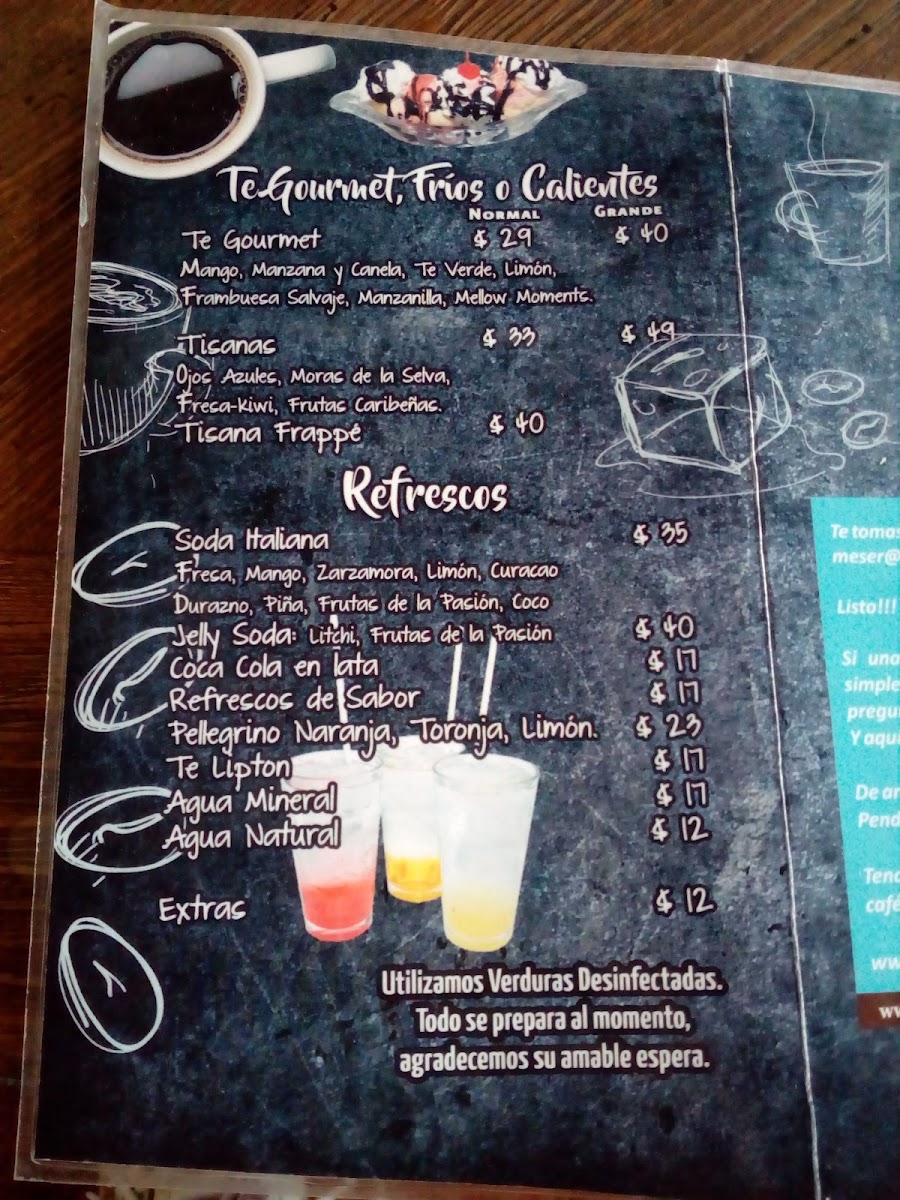 Te Gourmet, Fríos o Calientes
NORMAL GRANDE
Te Gourmet $ 29 $ 40
Mango, Manzana y Canela, Te Verde, Limón,
Frambuesa Salvaje, Manzanilla, Mellow Moments.
Tisanas $ 33 $ 49
Ojos Azules, Moras de la Selva,
Fresa-Kiwi, Frutas Caribeñas.
Tisana Frappé $ 40
Refrescos
Soda Italiana $ 35
Fresa, Mango, Zarzamora, Limón, Curacao
Durazno, Piña, Frutas de la Pasión, Coco
Jelly Soda: Litchi, Frutas de la Pasión $ 40
Coca Cola en lata $ 17
Refrescos de Sabor $ 17
Pellegrino Naranja, Toronja, Limón. $ 23
Te Lipton $ 17
Agua Mineral $ 17
Agua Natural $ 12
Extras $ 12
Utilizamos Verduras Desinfectadas.
Todo se prepara al momento,
agradecemos su amable espera.
Te tomas
meser@
Listo!!!
Si una
simple
pregu
Y aqui
De ar
Pend
Tend
café
ww